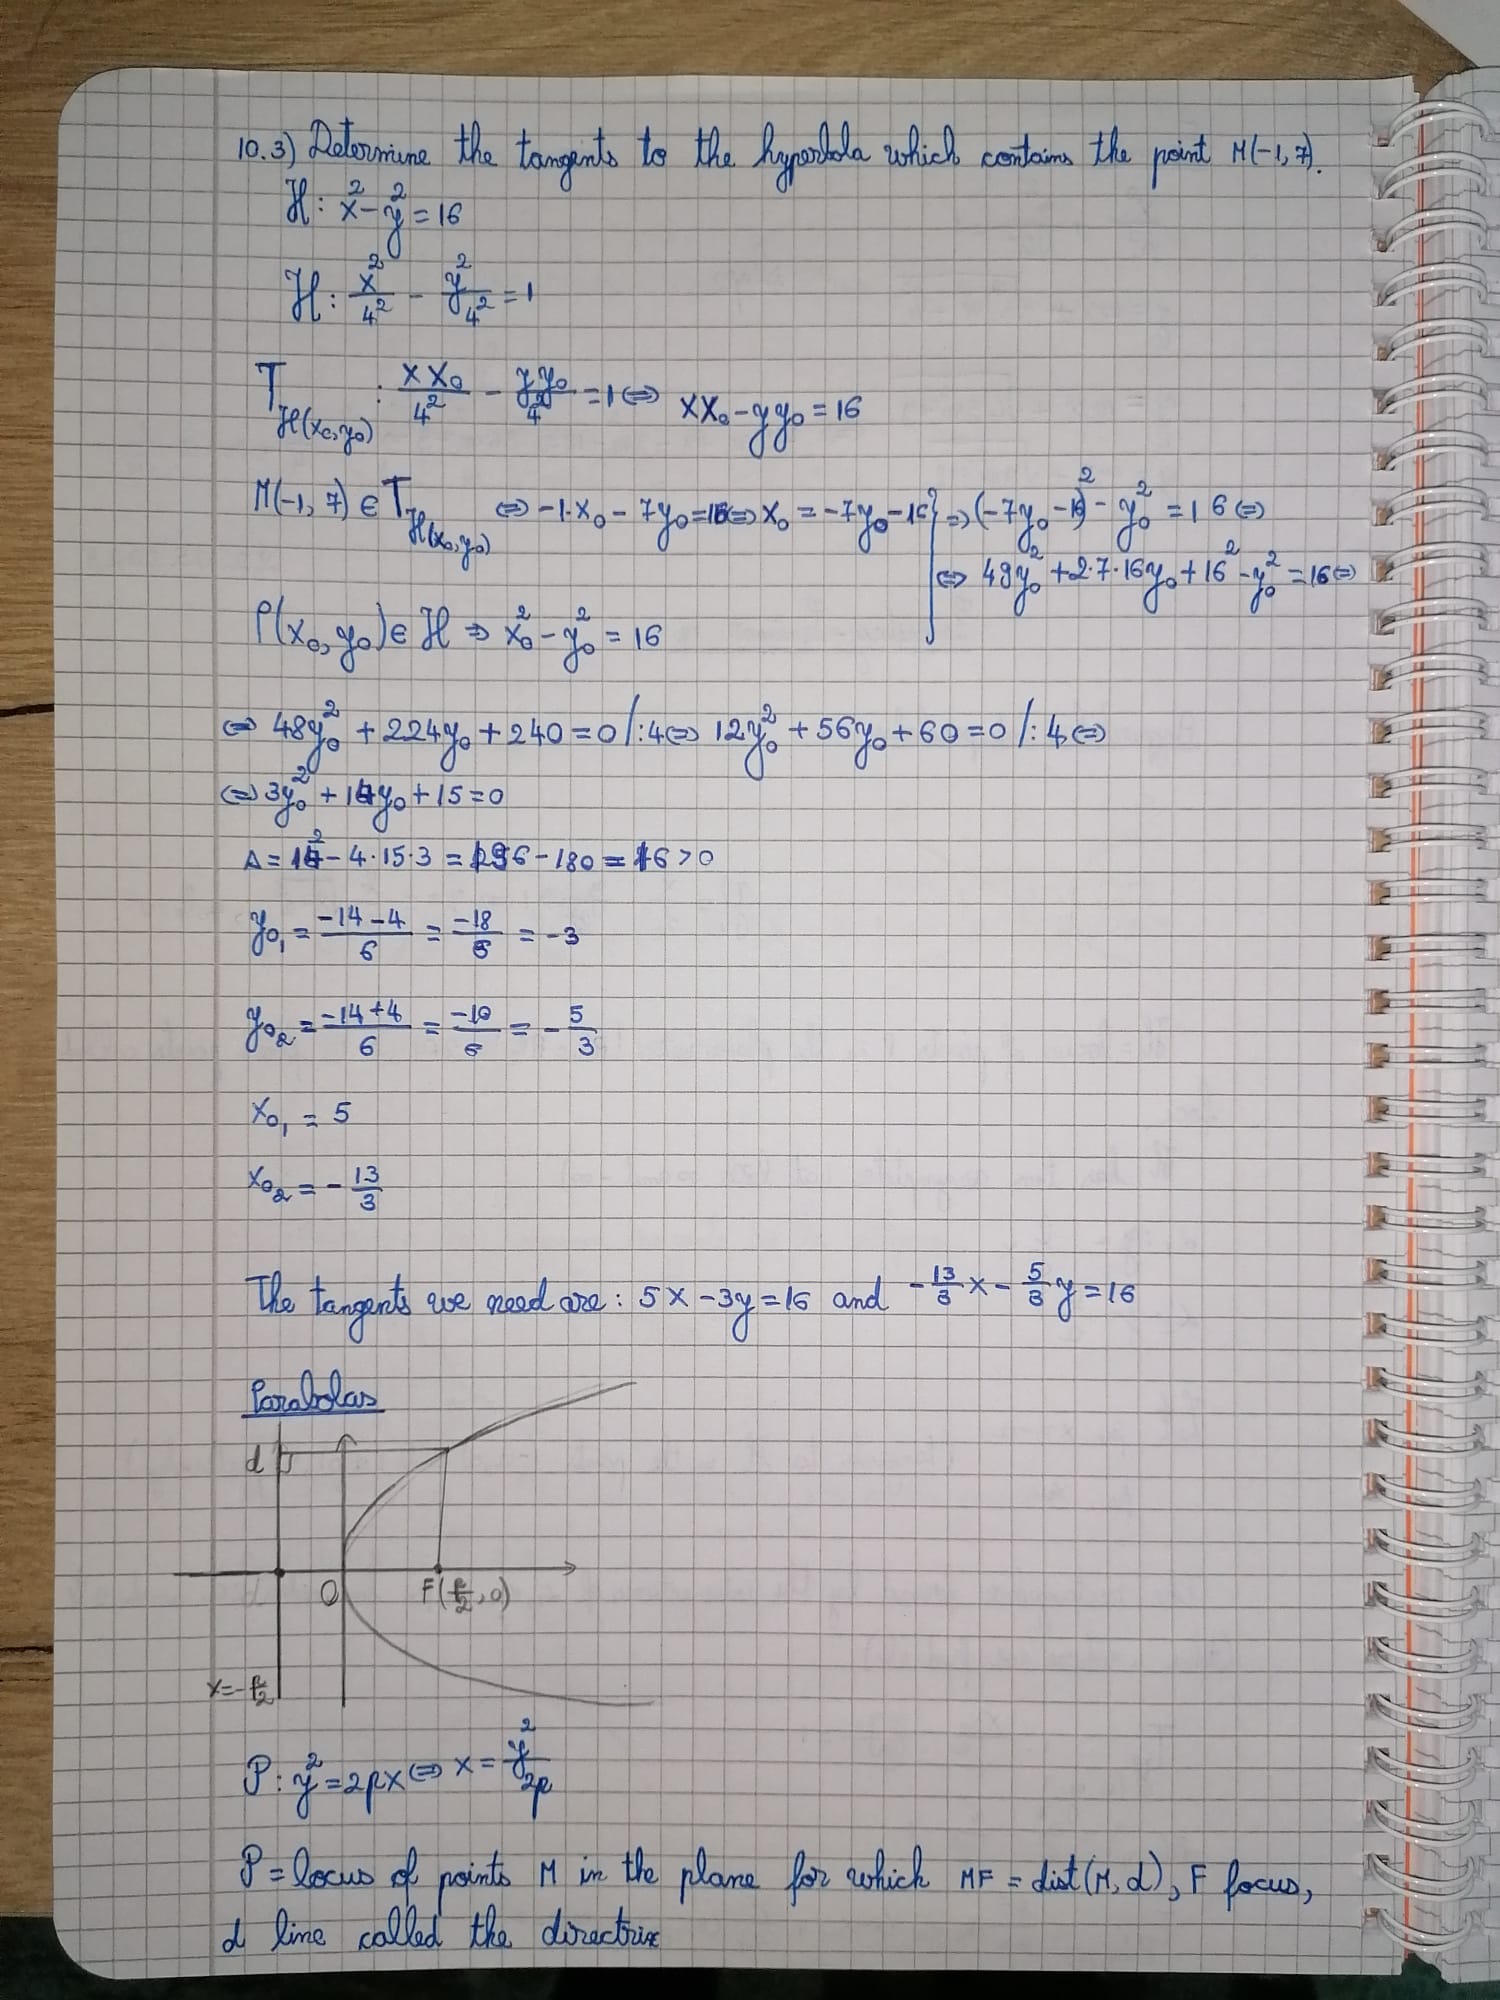 10.3) Determine the tangents to the hyperbola which contains the point M(-1, 7).
H: x² - y² = 16
H: x²/4² - y²/4² = 1
T_H(x₀, y₀) : xx₀/4² - yy₀/4² = 1 ⇔ xx₀ - yy₀ = 16
M(-1, 7) ∈ T_H(x₀, y₀) ⇔ -1·x₀ - 7y₀ = 16 ⇔ x₀ = -7y₀ - 16 } ⇒ (-7y₀ - 16)² - y₀² = 16 ⇔
⇔ 49y₀² + 2·7·16y₀ + 16² - y₀² = 16 ⇔
P(x₀, y₀) ∈ H ⇒ x₀² - y₀² = 16
⇔ 48y₀² + 224y₀ + 240 = 0 /:4 ⇔ 12y₀² + 56y₀ + 60 = 0 /:4 ⇔
⇔ 3y₀² + 14y₀ + 15 = 0
Δ = 14² - 4·15·3 = 196 - 180 = 16 > 0
y₀₁ = (-14 - 4)/6 = -18/6 = -3
y₀₂ = (-14 + 4)/6 = -10/6 = -5/3
x₀₁ = 5
x₀₂ = -13/3
The tangents we need are: 5x - 3y = 16 and -13/3 x - 5/3 y = 16
Parabolas
d
O F(p/2, 0)
x = -p/2
P: y² = 2px ⇔ x = y²/2p
P = locus of points M in the plane for which MF = dist(M, d), F focus,
d line called the directrix